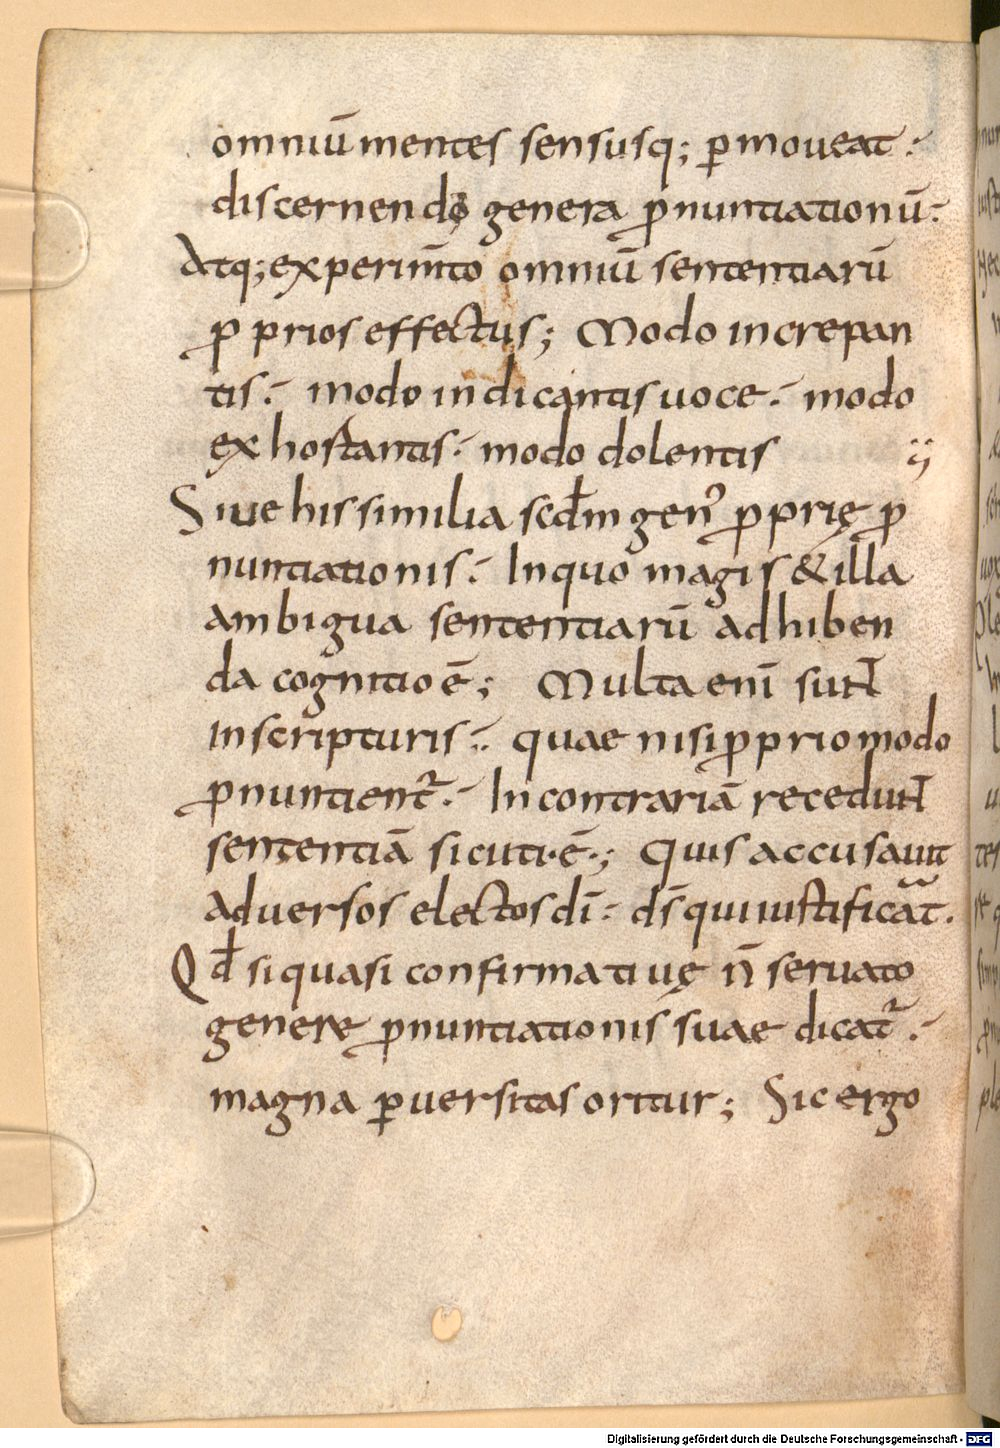 omniū mentes sensusq; ꝑmoueat :
discernendo genera ꝓnuntiationū :
Atq; experim̄to omniū sententiarū
ꝓprios effectus; Modo increpan
tis : modo indicantis uoce : modo
exhostantis : modo dolentis
Siue his similia scdm̄ gen᷒ ꝓprię ꝓ
nuntiationis : In quo magis & illa
ambigua sententiarū adhiben
da cognitio ē; Multa enī sunt
in scripturis : quae nisi ꝓprio modo
ꝓnuntient᷑ : In contrariā recedunt
sententiā sicut · ē ·; Quis accusauit
aduersos electos dī : ds̄ qui iustificat.
Qd̄ si quasi confirmatiuę n̄ seruato
genere ꝓnuntiationis suae dicat᷑ :
magna ꝑuersitas oritur; Sic ergo
Digitalisierung gefördert durch die Deutsche Forschungsgemeinschaft - DFG